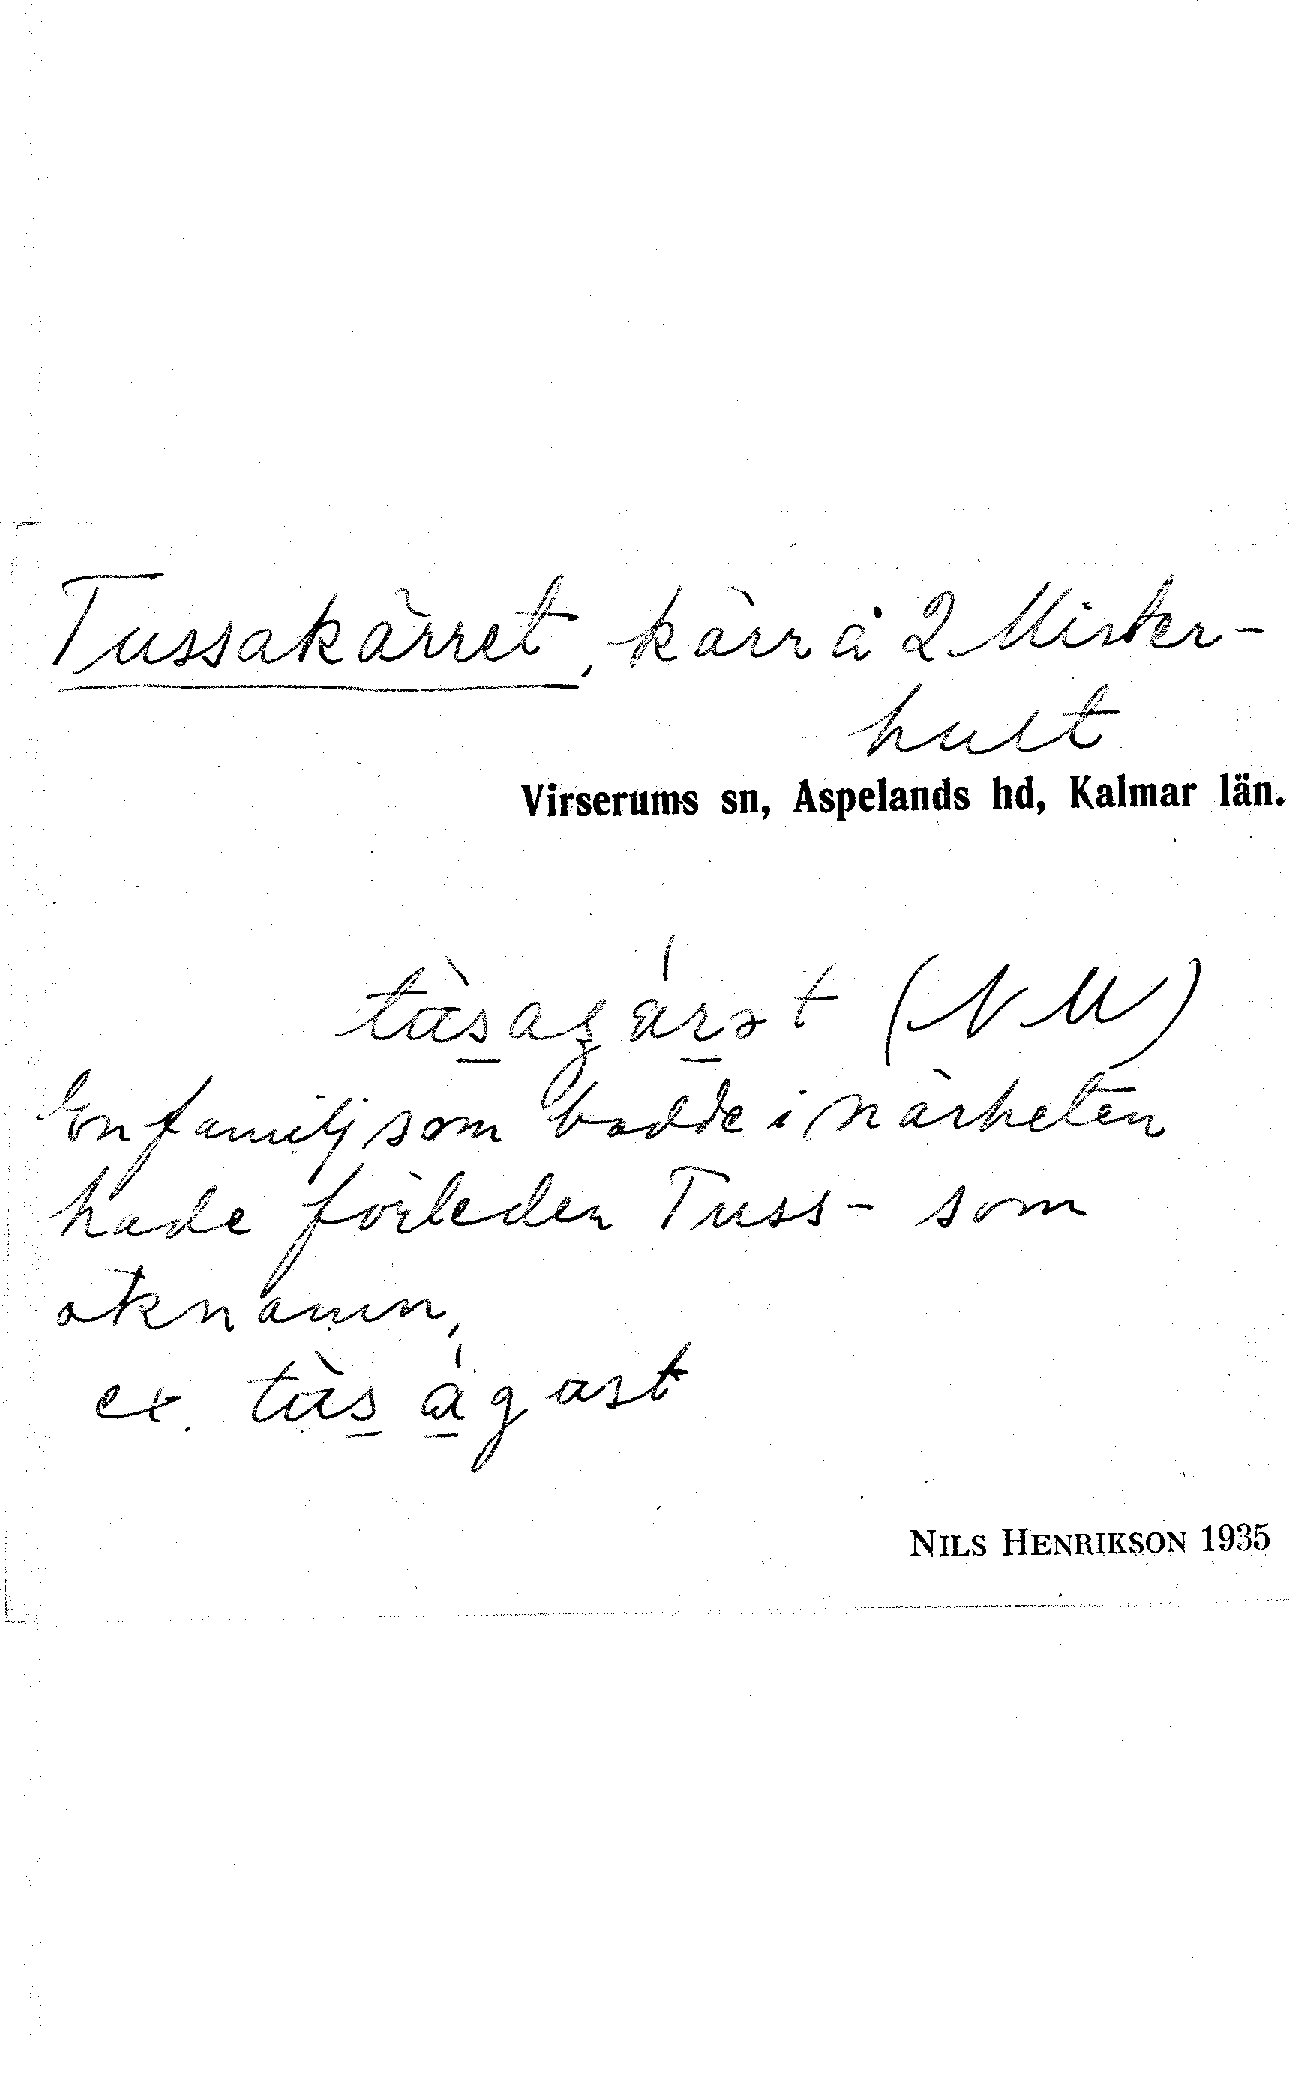 Tussakärret, kärr å 2 Mister-
hult
Virserums sn, Aspelands hd, Kalmar län.
tùsagár̲ət (NM)
En familj som bodde i närheten
hade förleden Tuss- som
öknamn,
ex. tùs̲ á̲gust
NILS HENRIKSON 1935